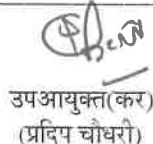 उपआयुक्त(कर)
(प्रदिप चौधरी)